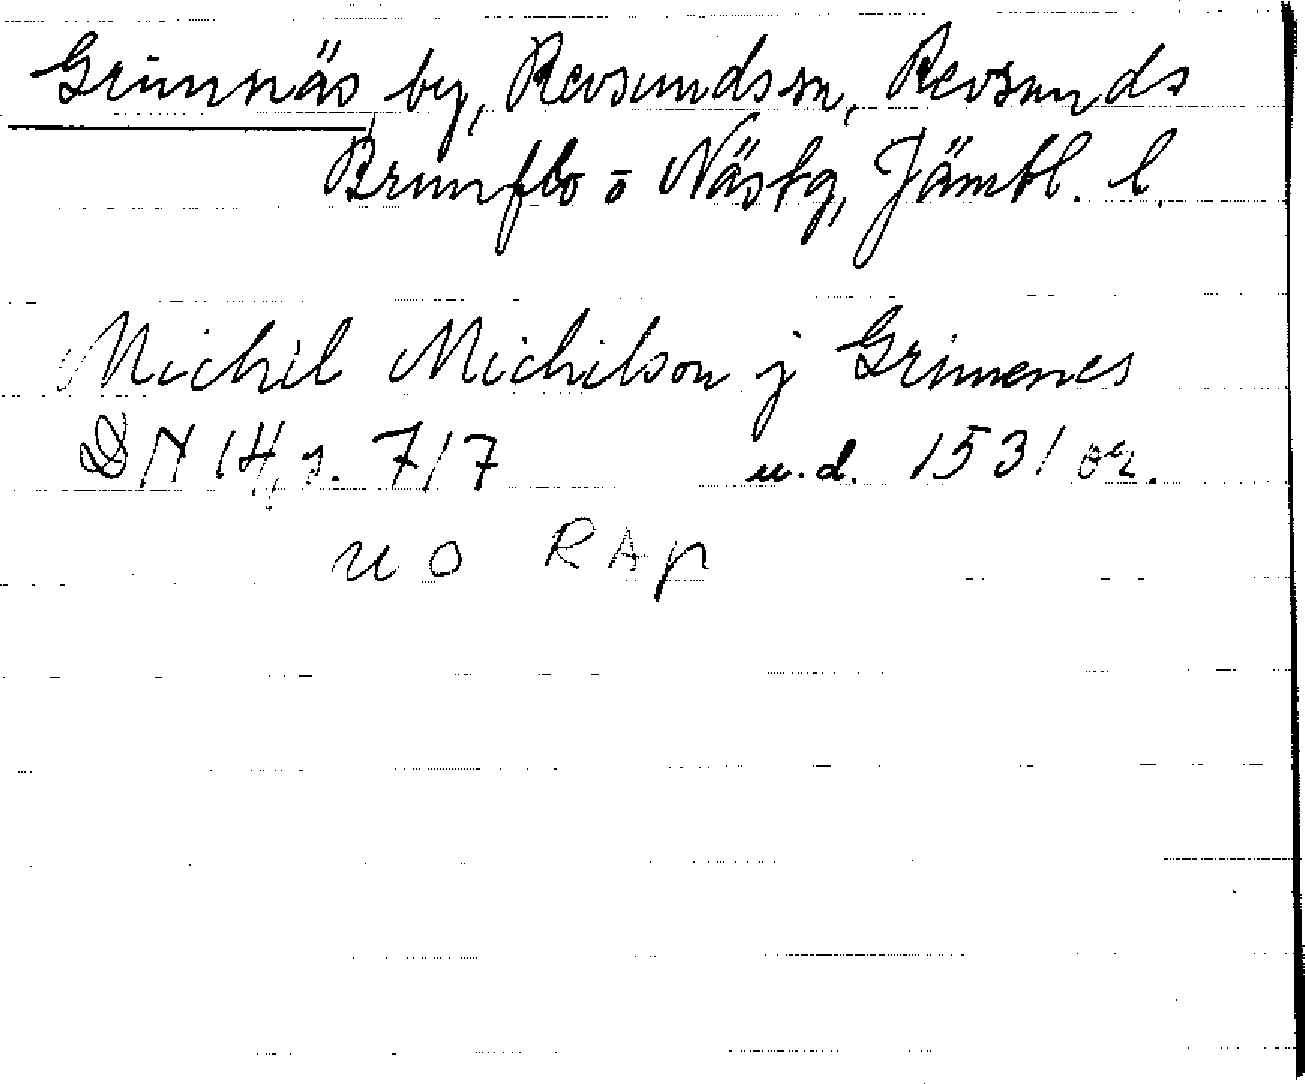 Grimnäs by, Revsunds sn, Revsunds
Brunflo o Näs tg, Jämtl. l.
Michil Michilson j Grimenes
DN 14, s. 717 u.d. 1531 or.
NO RAp